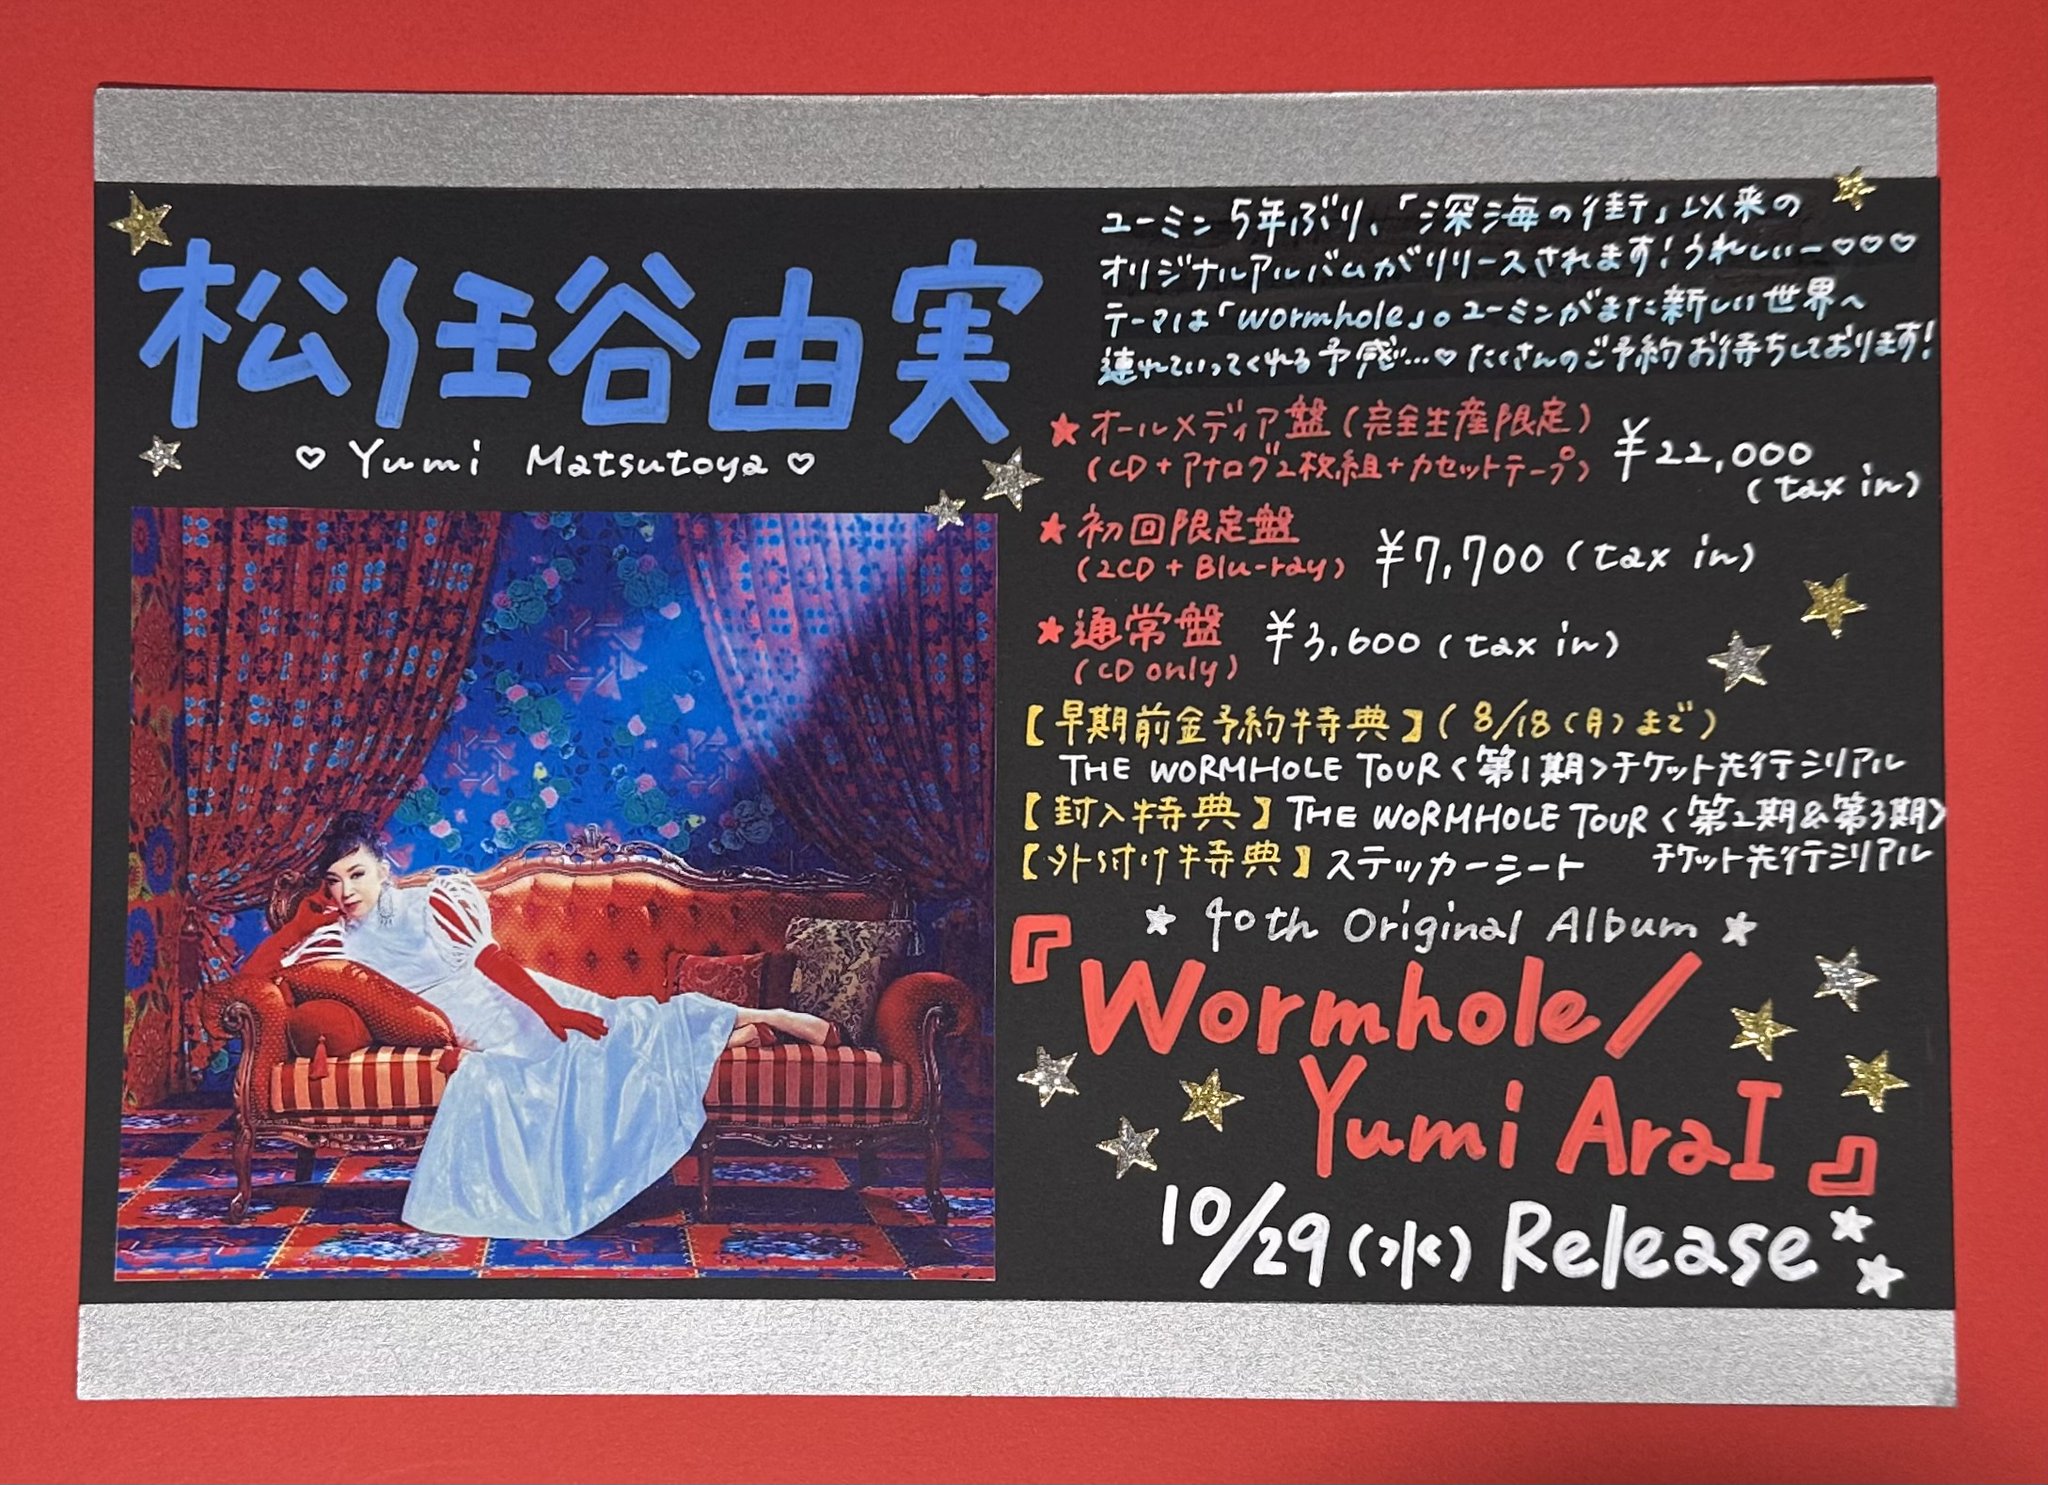 松任谷由実
♡ Yumi Matsutoya ♡
ユーミン5年ぶり、「深海の街」以来の
オリジナルアルバムがリリースされます!うれしいー♡♡♡
テーマは「wormhole」。ユーミンがまた新しい世界へ
連れていってくれる予感…♡ たくさんのご予約お待ちしております!
★オールメディア盤(完全生産限定)
(CD+アナログ2枚組+カセットテープ)
¥22,000
(tax in)
★初回限定盤
(2CD+Blu-ray)
¥7,700(tax in)
★通常盤
(CD only)
¥3,600(tax in)
【早期前金予約特典】(8/18(月)まで)
THE WORMHOLE TOUR<第1期>チケット先行シリアル
【封入特典】THE WORMHOLE TOUR<第2期&第3期>
チケット先行シリアル
【外付け特典】ステッカーシート
★ 40th Original Album ★
『Wormhole/
Yumi AraI』
10/29(水) Release★★